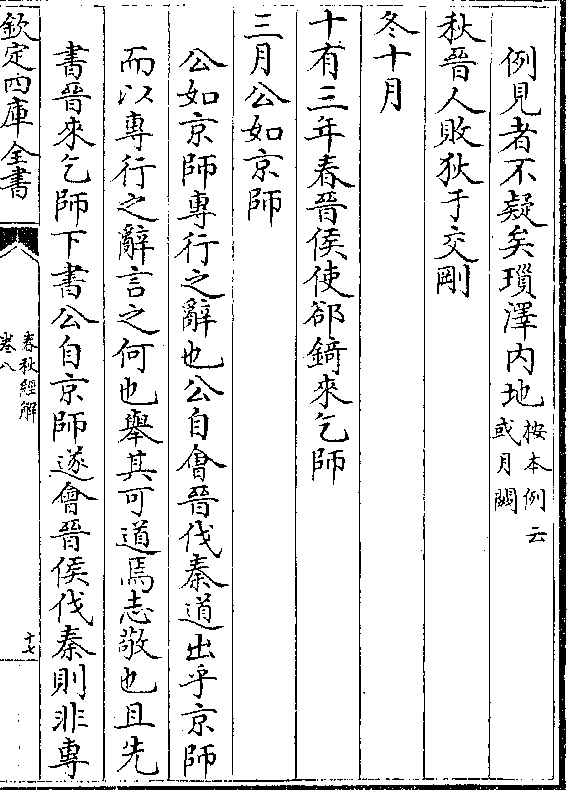 例見者不疑矣瑣澤内地按本例云或月闕
秋晉人敗狄于交剛
冬十月
十有三年春晉侯使郤錡來乞師
三月公如京師
公如京師專行之辭也公自會晉伐秦道出乎京師
而以專行之辭言之何也舉其可道焉志敬也且先
書晉來乞師下書公自京師遂會晉侯伐秦則非專
欽定四庫全書
春秋經解
卷八
十七